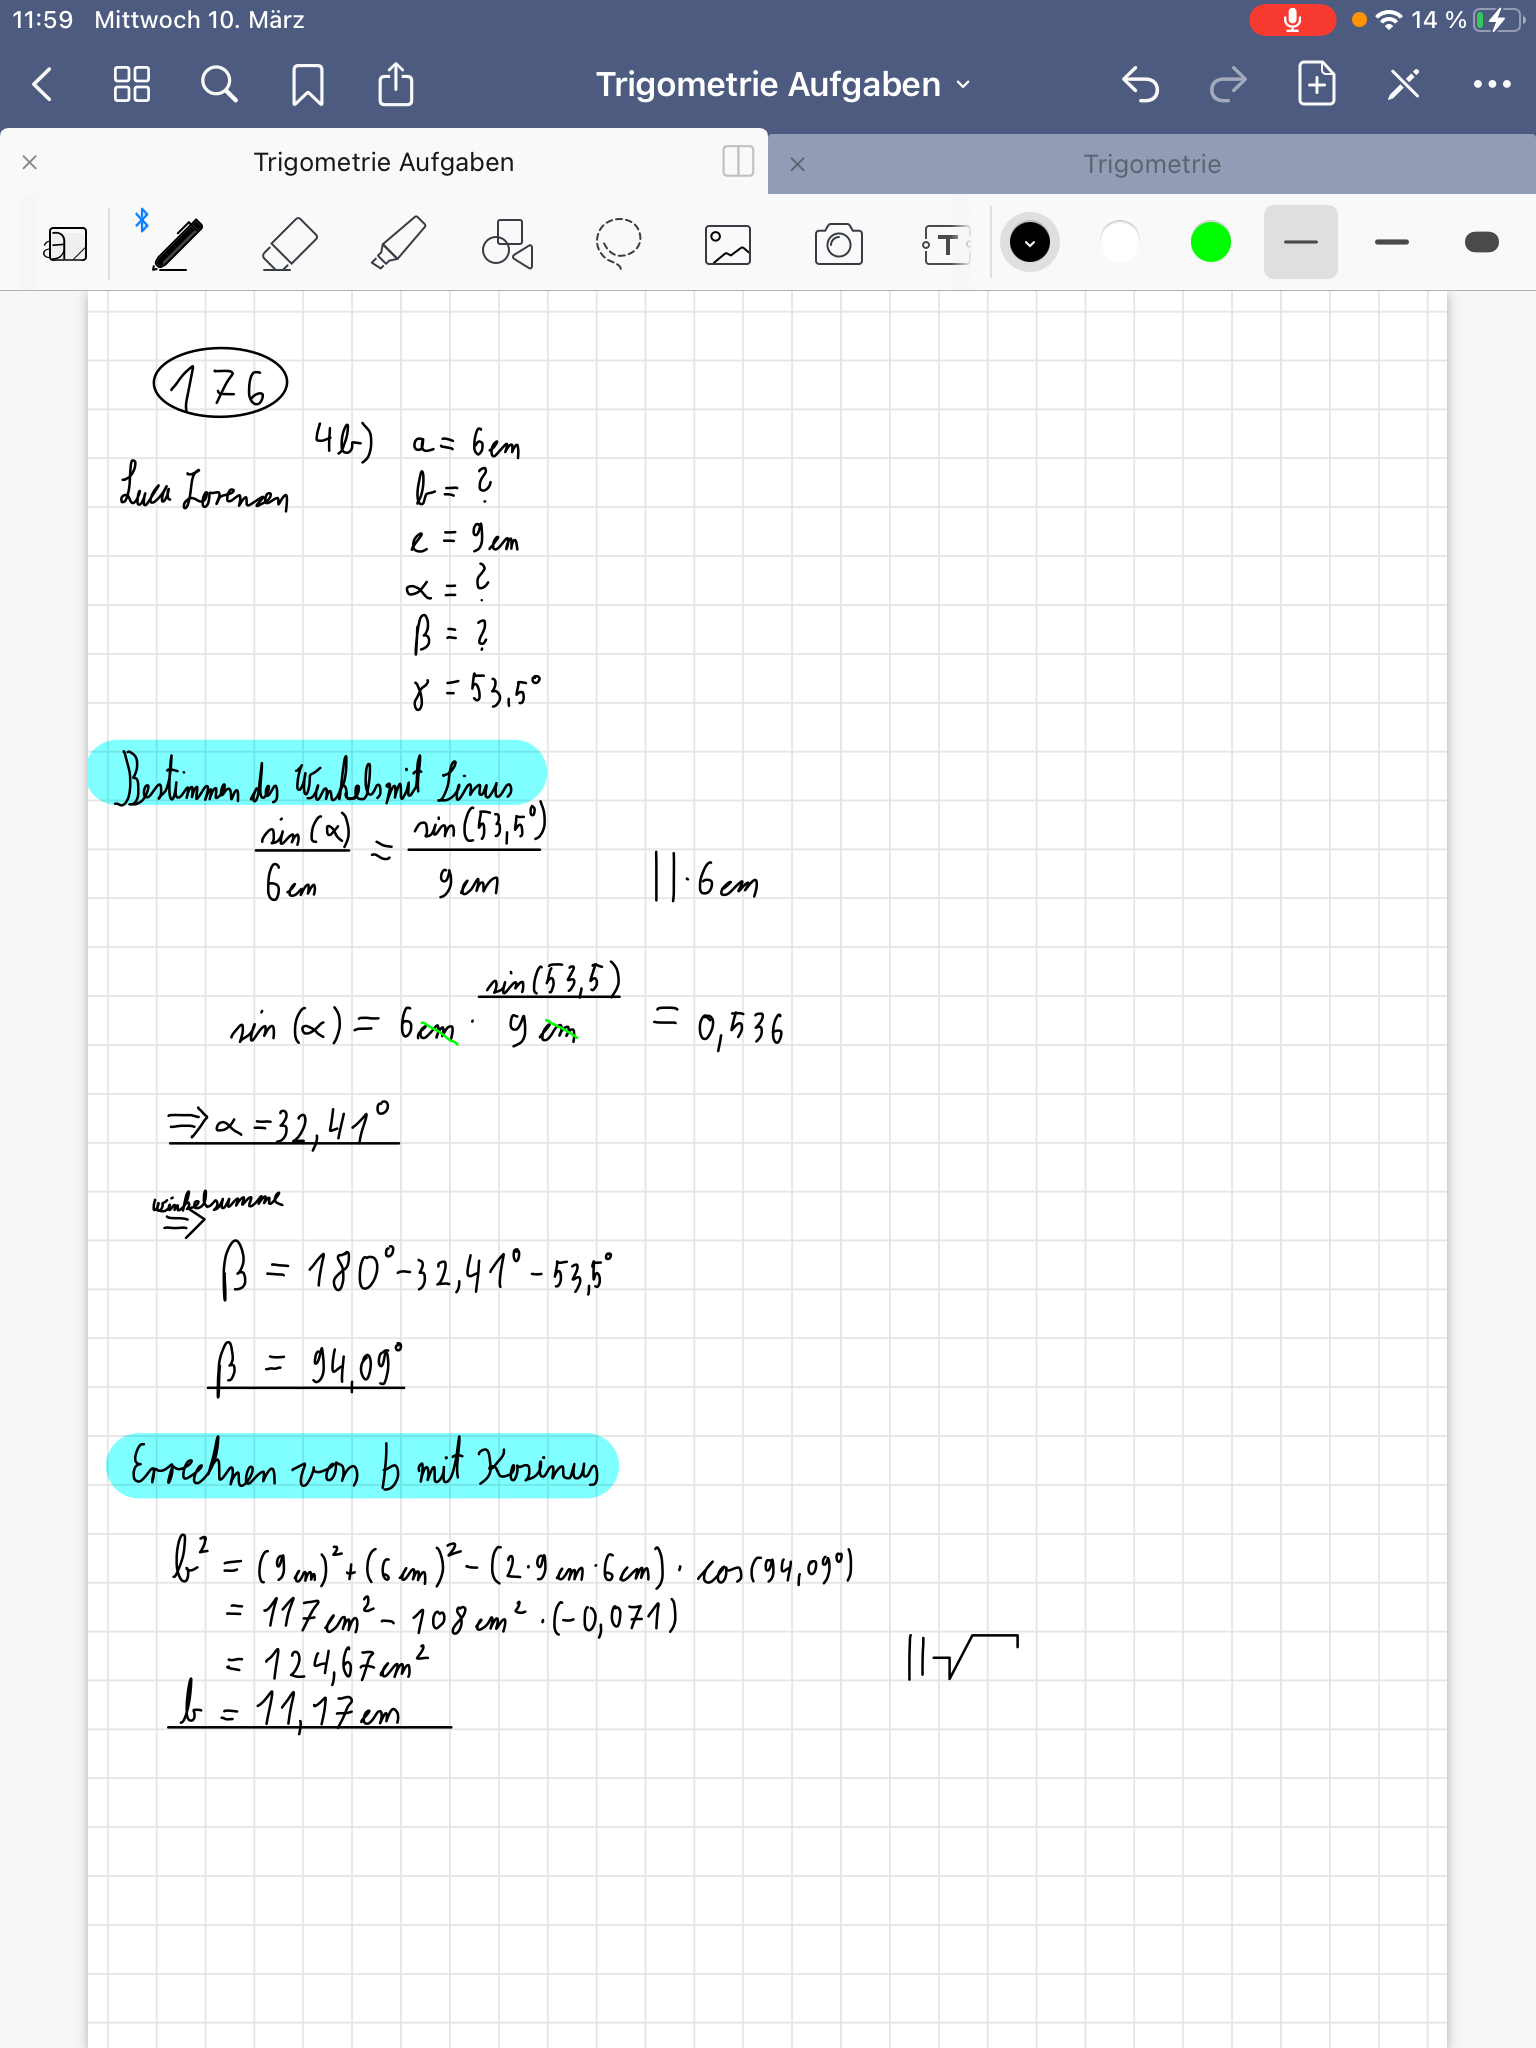 11:59 Mittwoch 10. März 14 %
Trigometrie Aufgaben
Trigometrie Aufgaben Trigometrie
176
4b) a = 6cm
Luca Lorenzen
b = ?
c = 9cm
α = ?
β = ?
γ = 53,5°
Bestimmen des Winkels mit Sinus
sin(α)/6cm = sin(53,5°)/9cm ||·6cm
sin(α) = 6cm · sin(53,5)/9cm = 0,536
⇒ α = 32,41°
winkelsumme
⇒
β = 180° - 32,41° - 53,5°
β = 94,09°
Errechnen von b mit Kosinus
b² = (9cm)² + (6cm)² - (2·9cm·6cm) · cos(94,09°)
= 117cm² - 108cm² · (-0,071)
= 124,67cm² ||√
b = 11,17cm